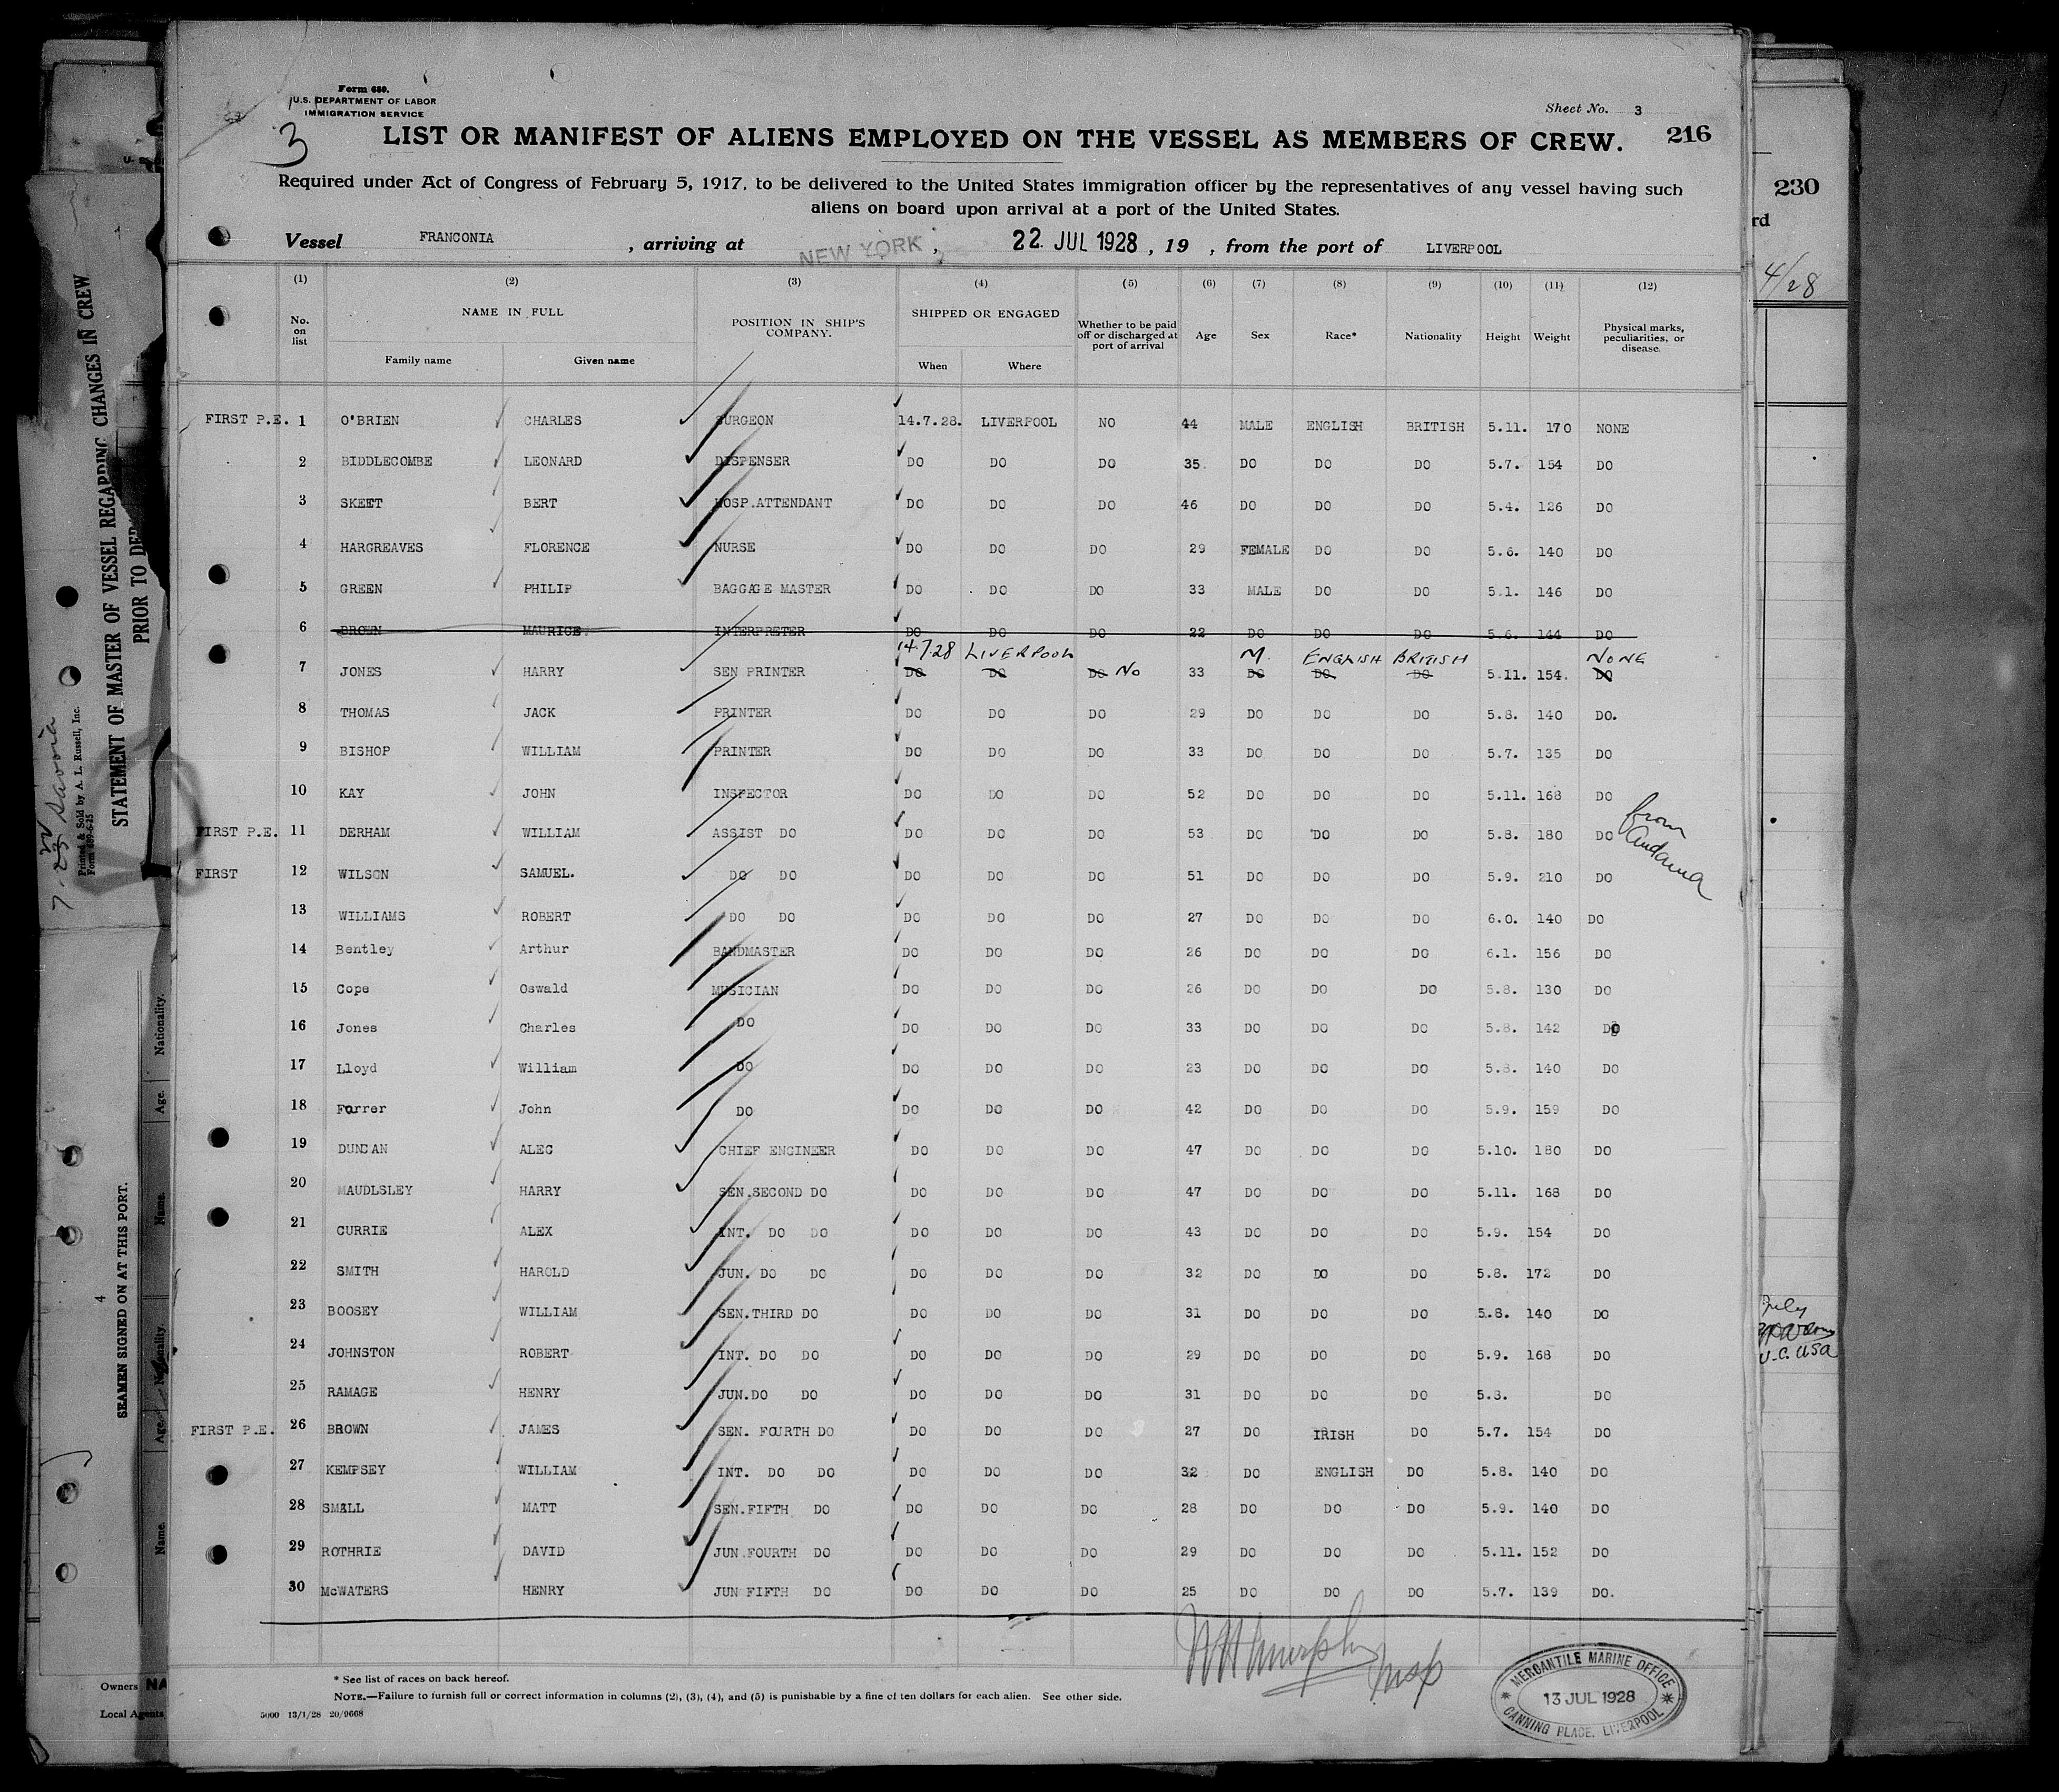 Form 680.
U.S. DEPARTMENT OF LABOR
IMMIGRATION SERVICE
Sheet No. 3
3
LIST OR MANIFEST OF ALIENS EMPLOYED ON THE VESSEL AS MEMBERS OF CREW. 216
Required under Act of Congress of February 5, 1917, to be delivered to the United States immigration officer by the representatives of any vessel having such
aliens on board upon arrival at a port of the United States.
Vessel FRANCONIA , arriving at NEW YORK , 22 JUL 1928 , 19 , from the port of LIVERPOOL
(1) (2) (3) (4) (5) (6) (7) (8) (9) (10) (11) (12)
No. on list NAME IN FULL POSITION IN SHIP'S COMPANY. SHIPPED OR ENGAGED Whether to be paid off or discharged at port of arrival Age Sex Race* Nationality Height Weight Physical marks, peculiarities, or disease.
Family name Given name When Where
FIRST P.E. 1 O'BRIEN CHARLES SURGEON 14.7.28. LIVERPOOL NO 44 MALE ENGLISH BRITISH 5.11. 170 NONE
2 BIDDLECOMBE LEONARD DISPENSER DO DO DO 35. DO DO DO 5.7. 154 DO
3 SKEET BERT HOSP.ATTENDANT DO DO DO 46 DO DO DO 5.4. 126 DO
4 HARGREAVES FLORENCE NURSE DO DO DO 29 FEMALE DO DO 5.6. 140 DO
5 GREEN PHILIP BAGGAGE MASTER DO DO DO 33 MALE DO DO 5.1. 146 DO
6 BROWN MAURICE INTERPRETER DO DO DO 22 DO DO DO 5.6. 144 DO
14.7.28 LIVERPOOL M. ENGLISH BRITISH NONE
7 JONES HARRY SEN PRINTER DO DO DO No 33 DO DO DO 5.11. 154. DO
8 THOMAS JACK PRINTER DO DO DO 29 DO DO DO 5.8. 140 DO.
9 BISHOP WILLIAM PRINTER DO DO DO 33 DO DO DO 5.7. 135 DO
10 KAY JOHN INSPECTOR DO DO DO 52 DO DO DO 5.11. 168 DO
FIRST P.E. 11 DERHAM WILLIAM ASSIST DO DO DO DO 53 DO DO DO 5.8. 180 DO from Andania
FIRST 12 WILSON SAMUEL. DO DO DO DO DO 51 DO DO DO 5.9. 210 DO
13 WILLIAMS ROBERT DO DO DO DO DO 27 DO DO DO 6.0. 140 DO
14 Bentley Arthur BANDMASTER DO DO DO 26 DO DO DO 6.1. 156 DO
15 Cope Oswald MUSICIAN DO DO DO 26 DO DO DO 5.8. 130 DO
16 Jones Charles DO DO DO DO 33 DO DO DO 5.8. 142 DO
17 Lloyd William DO DO DO DO 23 DO DO DO 5.8. 140 DO
18 Farrer John DO DO DO DO 42 DO DO DO 5.9. 159 DO
19 DUNCAN ALEC CHIEF ENGINEER DO DO DO 47 DO DO DO 5.10. 180 DO
20 MAUDLSLEY HARRY SEN.SECOND DO DO DO DO 47 DO DO DO 5.11. 168 DO
21 CURRIE ALEX INT. DO DO DO DO DO 43 DO DO DO 5.9. 154 DO
22 SMITH HAROLD JUN. DO DO DO DO DO 32 DO DO DO 5.8. 172 DO
23 BOOSEY WILLIAM SEN.THIRD DO DO DO DO 31 DO DO DO 5.8. 140 DO
24 JOHNSTON ROBERT INT. DO DO DO DO DO 29 DO DO DO 5.9. 168 DO
25 RAMAGE HENRY JUN.DO DO DO DO DO 31 DO DO DO 5.8. DO
FIRST P.E. 26 BROWN JAMES SEN. FOURTH DO DO DO DO 27 DO IRISH DO 5.7. 154 DO
27 KEMPSEY WILLIAM INT. DO DO DO DO DO 32 DO ENGLISH DO 5.8. 140 DO
28 SMALL MATT SEN.FIFTH DO DO DO DO 28 DO DO DO 5.9. 140 DO
29 ROTHRIE DAVID JUN.FOURTH DO DO DO DO 29 DO DO DO 5.11. 152 DO
30 McWATERS HENRY JUN FIFTH DO DO DO DO 25 DO DO DO 5.7. 139 DO.
* See list of races on back hereof.
NOTE.—Failure to furnish full or correct information in columns (2), (3), (4), and (5) is punishable by a fine of ten dollars for each alien. See other side.
5000 13/1/28 20/9668
W H Murphy Insp
MERCANTILE MARINE OFFICE
13 JUL 1928
CANNING PLACE, LIVERPOOL
STATEMENT OF MASTER OF VESSEL REGARDING CHANGES IN CREW
PRIOR TO
Printed & Sold by A. L. Russell, Inc.
Form 689-6-25
SEAMEN SIGNED ON AT THIS PORT.
4
Nationality.
Age.
Name.
Nationality.
Age.
Name.
Owners NA
Local Agents
230
rd
4/28
July
U.C. USA